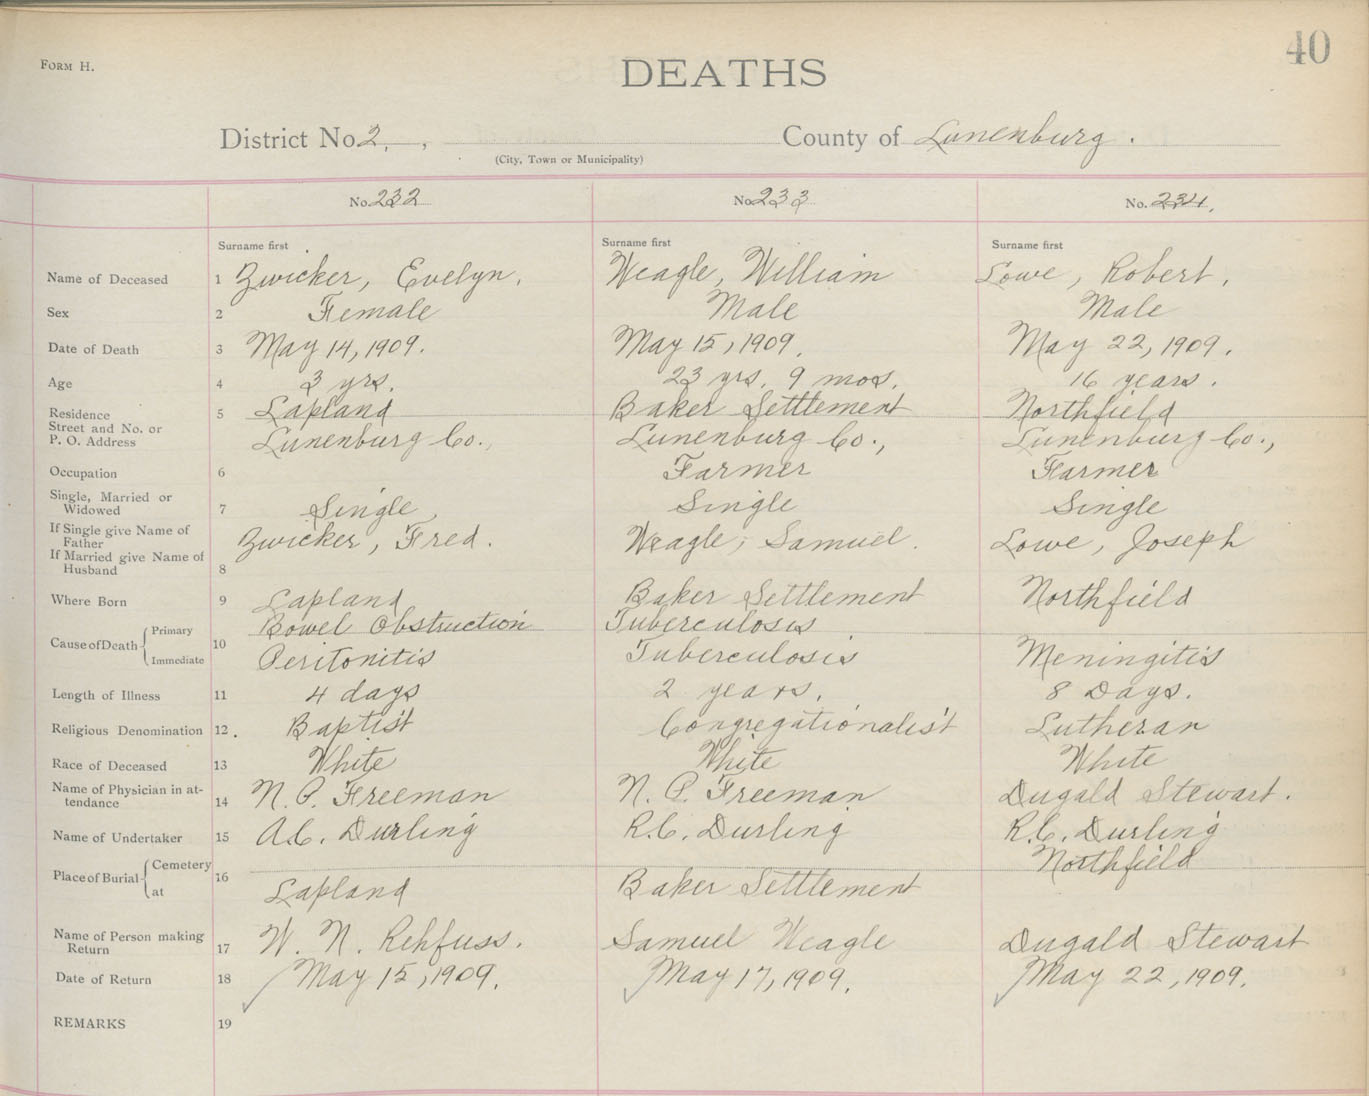 40
FORM H.
DEATHS
District No. 2. , County of Lunenburg.
(City, Town or Municipality)
No. 232 No. 233 No. 234.
Surname first Surname first Surname first
Name of Deceased 1 Zwicker, Evelyn. Weagle, William Lowe, Robert.
Sex 2 Female Male Male
Date of Death 3 May 14, 1909. May 15, 1909. May 22, 1909.
Age 4 3 yrs. 23 yrs. 9 mos. 16 years.
Residence 5 Lapland Baker Settlement Northfield
Street and No. or
P. O. Address Lunenburg Co., Lunenburg Co., Lunenburg Co.,
Occupation 6 Farmer Farmer
Single, Married or
Widowed 7 Single Single Single
If Single give Name of
Father Zwicker, Fred. Weagle, Samuel. Lowe, Joseph
If Married give Name of
Husband 8
Where Born 9 Lapland Baker Settlement Northfield
Cause of Death Primary 10 Bowel Obstruction Tuberculosis
Immediate Peritonitis Tuberculosis Meningitis
Length of Illness 11 4 days 2 years. 8 Days.
Religious Denomination 12 Baptist Congregationalist Lutheran
Race of Deceased 13 White White White
Name of Physician in at-
tendance 14 N. P. Freeman N. P. Freeman Dugald Stewart.
Name of Undertaker 15 A.C. Durling R.C. Durling R.C. Durling
Place of Burial Cemetery 16 Northfield
at Lapland Baker Settlement
Name of Person making
Return 17 W. N. Rehfuss. Samuel Weagle Dugald Stewart
Date of Return 18 May 15, 1909. May 17, 1909. May 22, 1909.
REMARKS 19